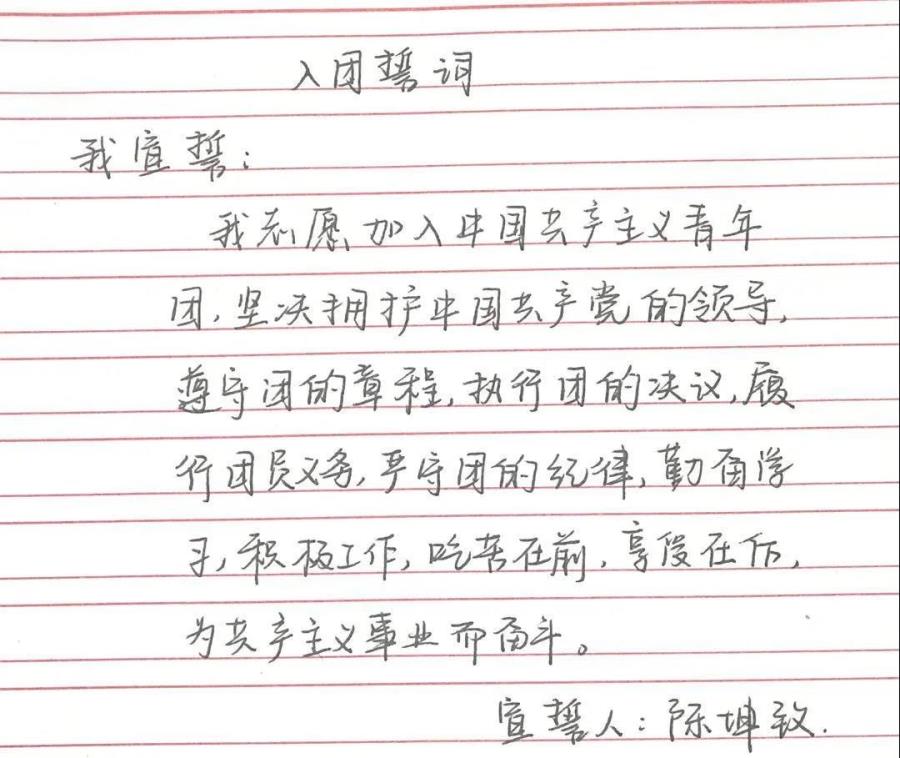 入团誓词
我宣誓:
我志愿加入中国共产主义青年
团,坚决拥护中国共产党的领导,
遵守团的章程,执行团的决议,履
行团员义务,严守团的纪律,勤奋学
习,积极工作,吃苦在前,享受在后,
为共产主义事业而奋斗。
宣誓人:陈坤致.